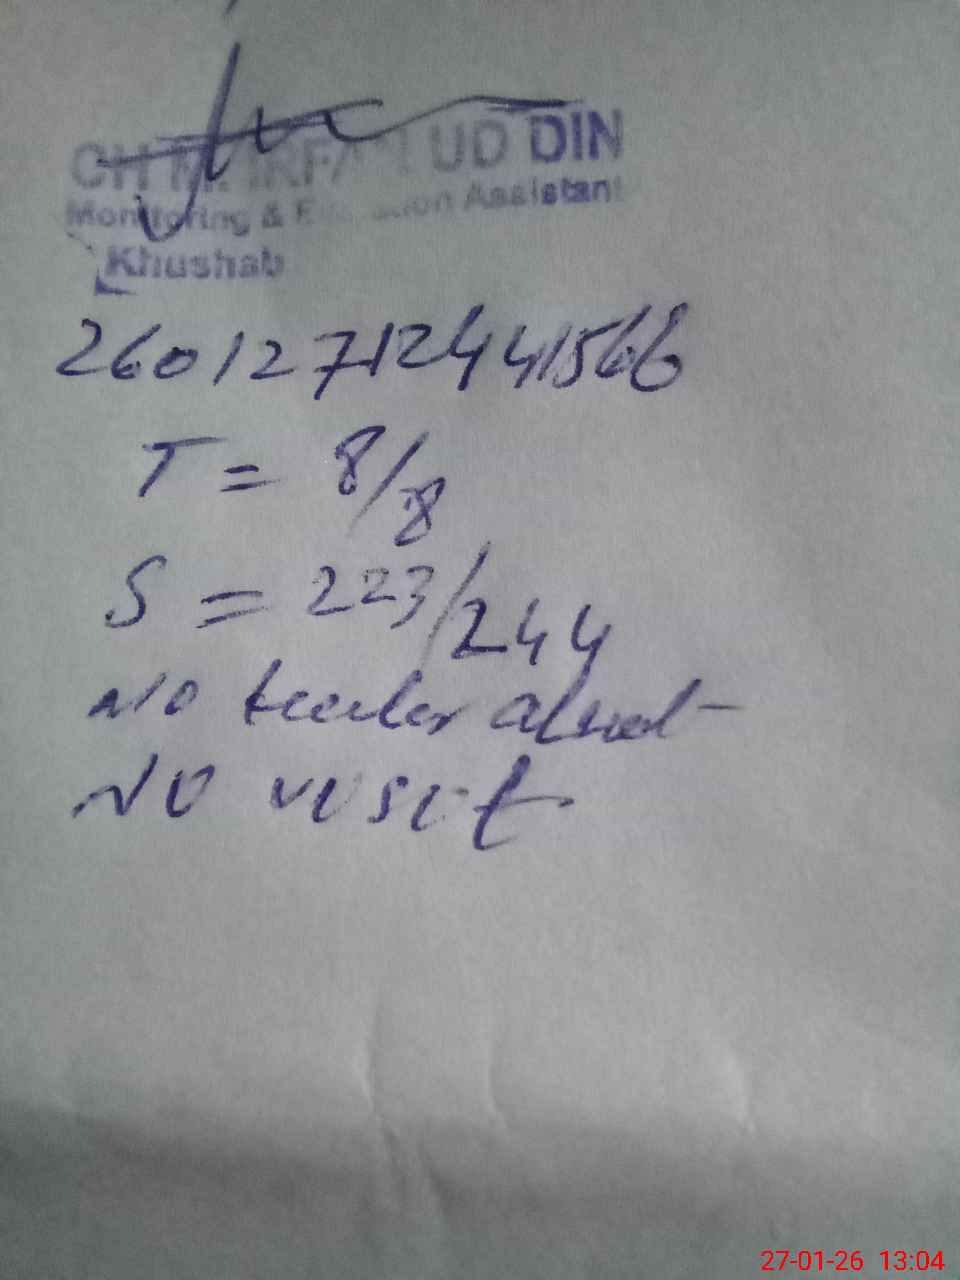 CH M. IRFAN UD DIN
Monitoring & Evaluation Assistant
Khushab
260127124441566
T = 8/8
S = 223/244
No teacher absent
No visit
27-01-26 13:04